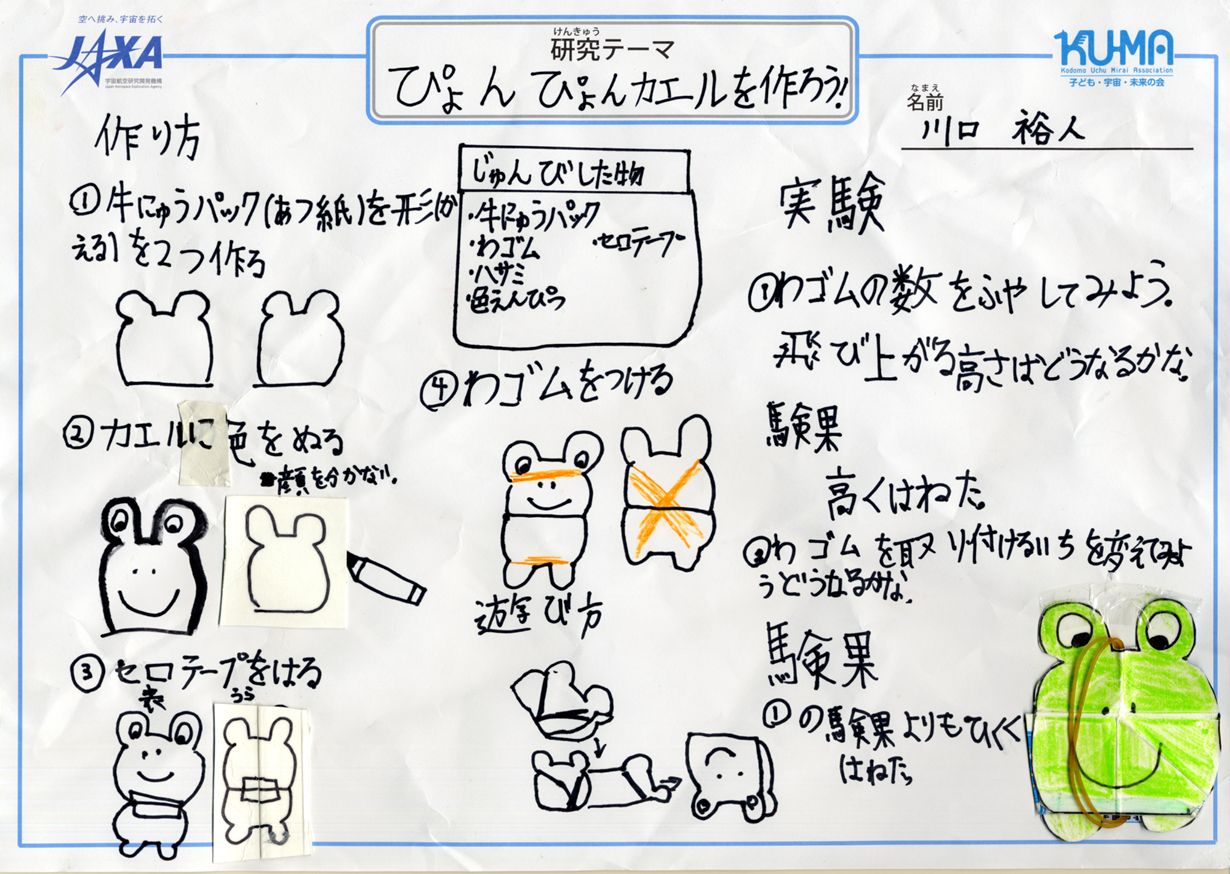 空へ挑み、宇宙を拓く
JAXA
宇宙航空研究開発機構
Japan Aerospace Exploration Agency
けんきゅう
研究テーマ
ぴょんぴょんカエルを作ろう!
KU-MA
Kodomo Uchu Mirai Association
子ども・宇宙・未来の会
なまえ
名前
川口 裕人
作り方
①牛にゅうパック(あつ紙)を形(か
える)を2つ作る
②カエルに色をぬる
顔を分かない。
③セロテープをはる
表
うら
じゅんびした物
・牛にゅうパック
・わゴム ・セロテープ
・ハサミ
・色えんぴつ
④わゴムをつける
遊び方
実験
①わゴムの数をふやしてみよう。
飛び上がる高さはどうなるかな。
験果
高くはねた。
②わゴムを取り付けるいちを変えてみよ
うどうなるかな。
験果
①の験果よりもひくく
はねた。